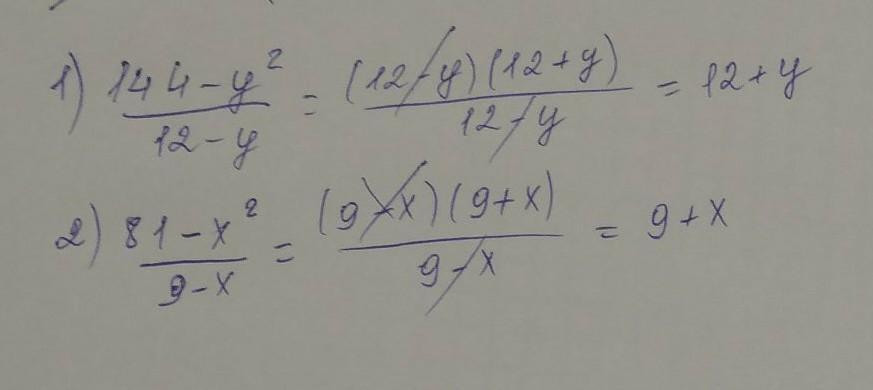 1) \frac{144-y^2}{12-y} = \frac{(12-y)(12+y)}{12-y} = 12+y
2) \frac{81-x^2}{9-x} = \frac{(9-x)(9+x)}{9-x} = 9+x